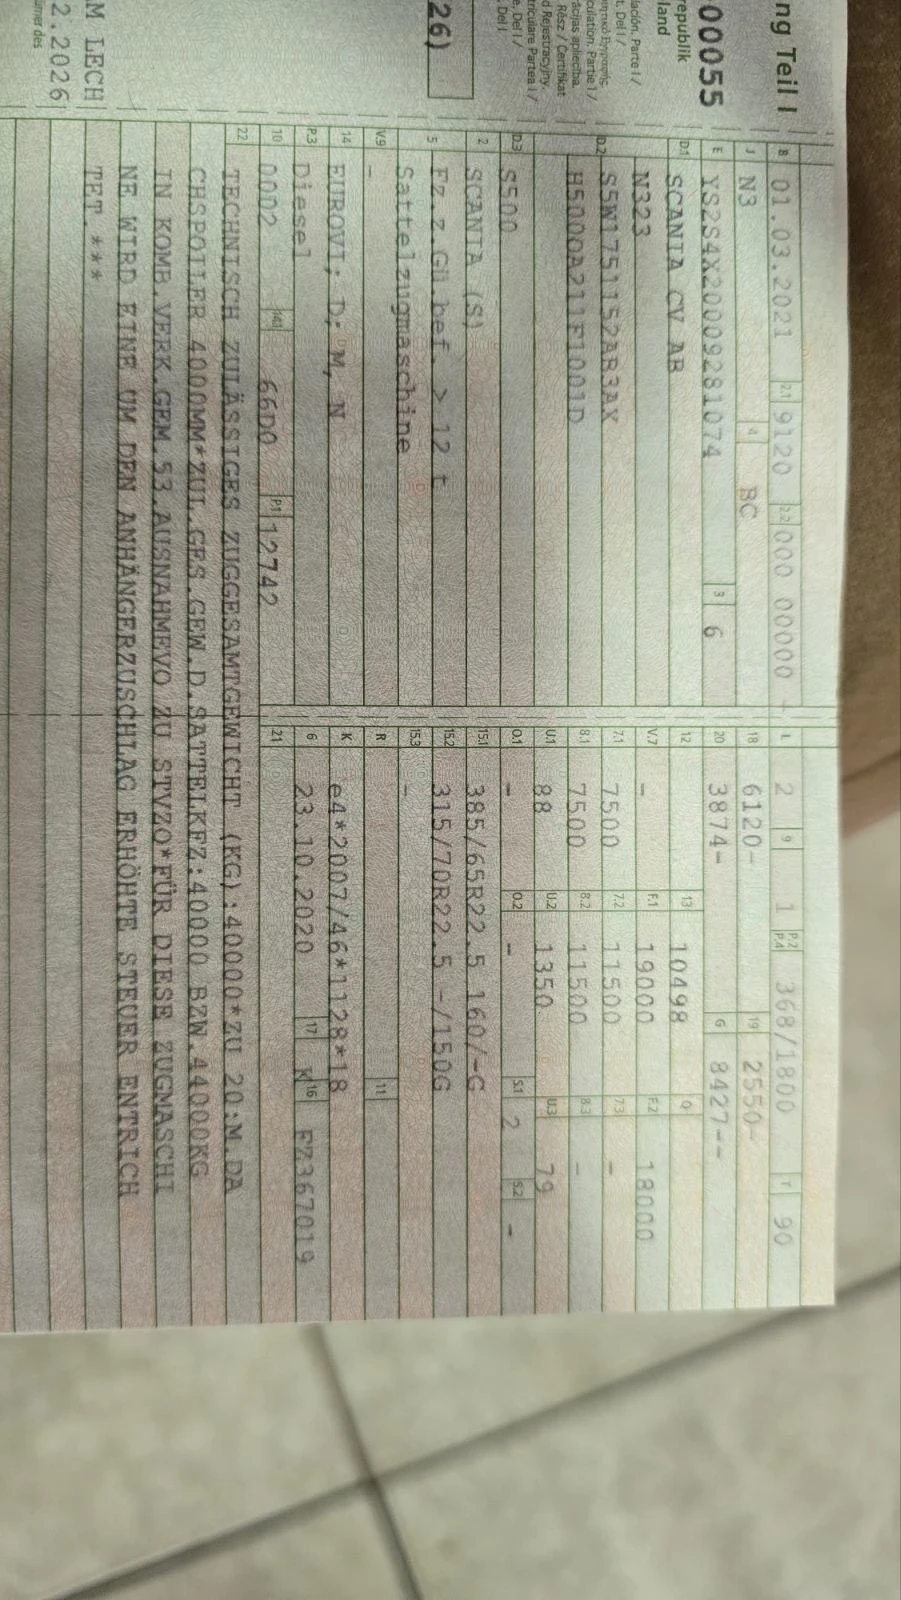 ng Teil I
00055
republik
land
lación. Parte I /
t. Del I /
culation. Partie I /
ācijas apliecība.
Rész / Certifikat
d Rejestracyjny.
triculare Partea I /
e. Del I /
. Del I
26)
M LECH
2.2026
B 01.03.2021 2.1 9120 2.2 000 00000 -
J N3 4 BC
E YS2S4X20009281074 3 6
D.1 SCANIA CV AB
N323
D.2 S5W1751152AB3AX
H5000A211F1001D
D.3 S500
2 SCANIA (S)
5 Fz.z.Gü.bef. > 12 t
Sattelzugmaschine
V.9 -
14 EUROVI; D; M, N
P.3 Diesel
10 0002 14.1 66D0 P.1 12742
L 2 9 1 P.2 P.4 368/1800 T 90
18 6120- 19 2550-
20 3874- G 8427--
12 13 10498 Q
V.7 - F.1 19000 F.2 18000
7.1 7500 7.2 11500 7.3 -
8.1 7500 8.2 11500 8.3 -
U.1 88 U.2 1350 U.3 79
O.1 - O.2 - S.1 2 S.2 -
15.1 385/65R22.5 160/-G
15.2 315/70R22.5 -/150G
15.3 -
R 11
K e4*2007/46*1128*18
6 23.10.2020 17 K 16 FZ367019
21
22 TECHNISCH ZULÄSSIGES ZUGGESAMTGEWICHT (KG):40000*ZU 20:M.DA
CHSPOILER 4000MM*ZUL.GES.GEW.D.SATTELKFZ:40000 BZW.44000KG
IN KOMB.VERK.GEM.53.AUSNAHMEVO ZU STVZO*FÜR DIESE ZUGMASCHI
NE WIRD EINE UM DEN ANHÄNGERZUSCHLAG ERHÖHTE STEUER ENTRICH
TET.***